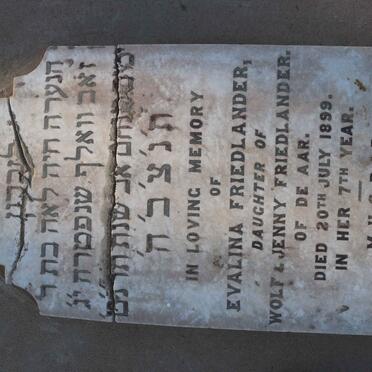 לזכרון
הנערה חיה לאה בת ר׳
זאב וואלף שנפטרה י״ג
ימים מנחם אב שנת תרנ״ט
ת׳נ׳צ׳ב׳ה׳
IN LOVING MEMORY
OF
EVALINA FRIEDLANDER,
DAUGHTER OF
WOLF & JENNY FRIEDLANDER.
OF DE AAR.
DIED 20TH JULY 1899.
IN HER 7TH YEAR.